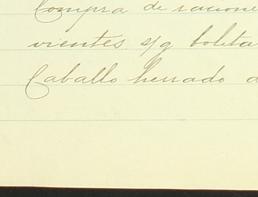 Compra de racione
vientes s/g boleta
Caballo herrado a